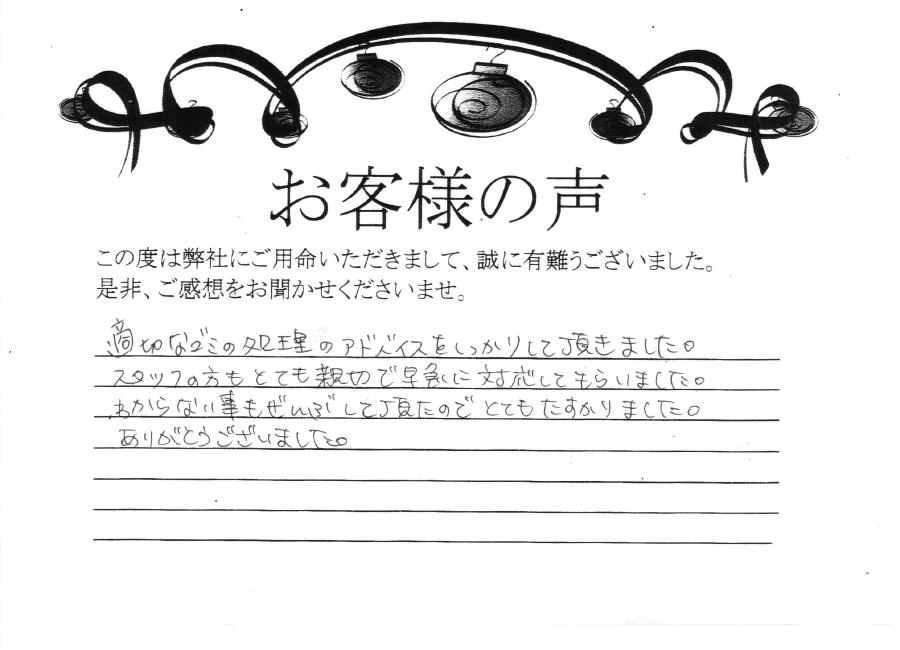 お客様の声
この度は弊社にご用命いただきまして、誠に有難うございました。
是非、ご感想をお聞かせくださいませ。
適切なゴミの処理のアドバイスをしっかりして頂きました。
スタッフの方もとても親切で早急に対応してもらいました。
わからない事もぜんぶして頂たのでとてもたすかりました。
ありがとうございました。